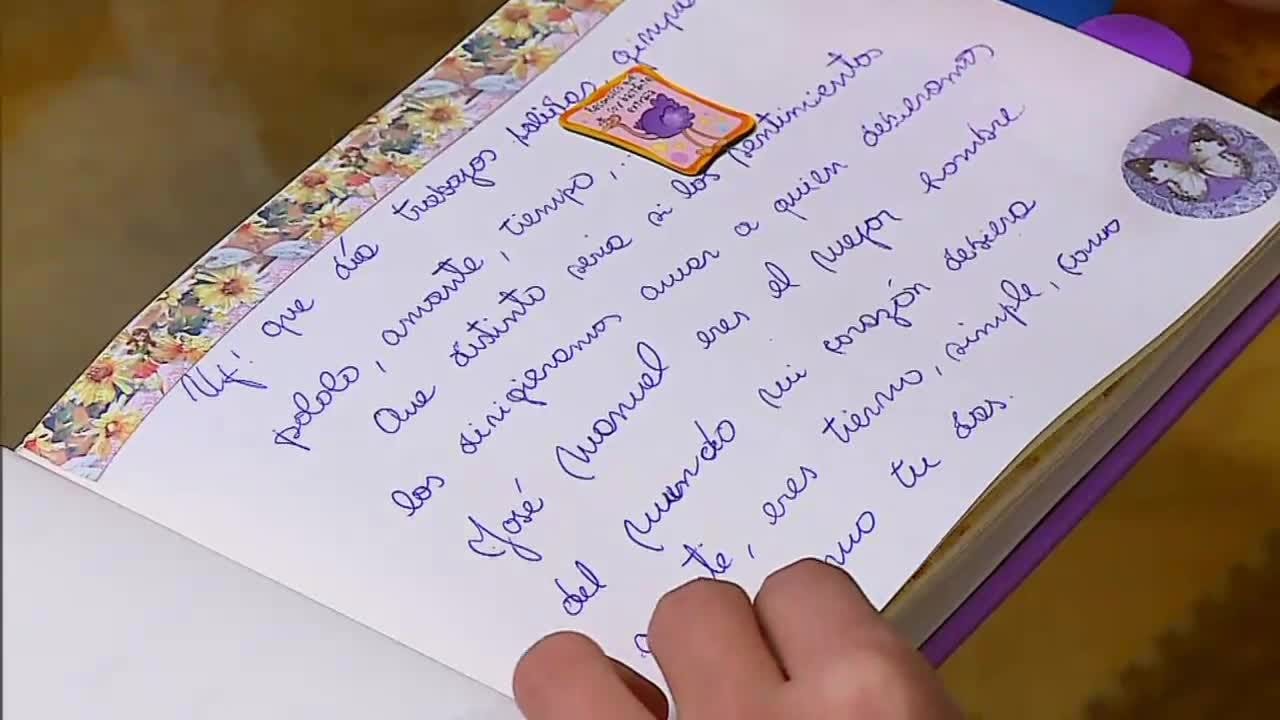 Uf! que día trabajos
pololo, amante, tiempo,..
Que distinto seria si los sentimientos
los dirigieramos amar a quien debieramos
José Manuel eres el mejor hombre
del mundo mi corazón debiera
te, eres tierno, simple, como
tu das.